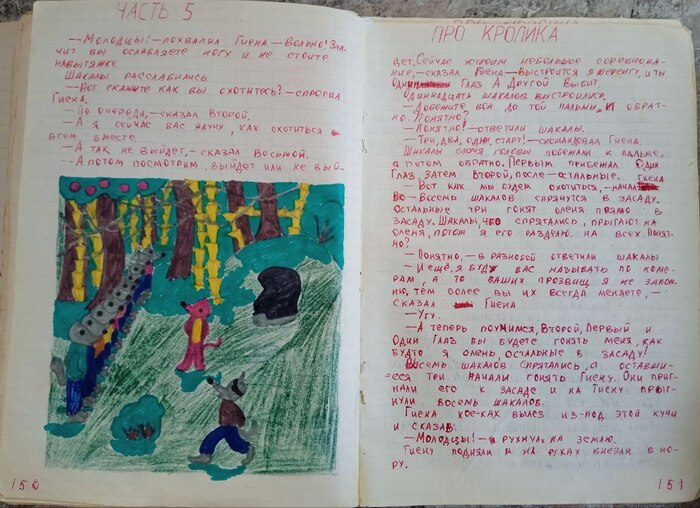 ЧАСТЬ 5
—Молодцы!—похвалил Гиена.—Вольно! Зна-
чит вы ослабляете ногу и не стоите
навытяжку.
Шакалы расслабились.
—Вот скажите как вы охотитесь?—спросил
Гиена.
—По очереди,—сказал Второй.
—А я сейчас вас научу, как охотиться
всем вместе.
—А так не выйдет,—сказал Восьмой.
—А потом посмотрим, выйдет или не вый-
150
ПРО КРОЛИКА
дет. Сейчас устроим небольшое соревнова-
ние,—сказал Гиена—Выстройся в шеренгу, и ты
Один Глаз А Другой Выбит.
Одиннадцать шакалов выстроились.
—Добежите вон до той пальмы, и обрат-
но. Понятно?
—Понятно!—ответили шакалы.
—Три, два, один, старт!—скомандовал Гиена.
Шакалы сломя головы побежали к пальме,
а потом обратно. Первым прибежал Один
Глаз, затем Второй, после—остальные.
—Вот как мы будем охотиться,—начал Гиена
—Восемь шакалов спрячутся в засаду.
Остальные три гонят оленя прямо в
засаду. Шакалы, что спрятались, прыгают на
оленя, потом я его разделю на всех. Понят-
но?
—Понятно,—в разнобой ответили шакалы
—И ещё, я буду вас называть по номе-
рам, а то ваших прозвищ я не запом-
ню, тем более вы их всегда меняете,—
сказал Гиена
—Угу.
—А теперь поучимся, Второй, Первый и
Один Глаз вы будете гонять меня, как
будто я олень, остальные в засаду!
Восемь шакалов спрятались, а оставши-
еся три начали гонять Гиену. Они приг-
нали его к засаде и на Гиену прыг-
нули восемь шакалов.
Гиена кое-как вылез из-под этой кучи
и сказав
—Молодцы!—рухнул на землю.
Гиену подняли и на руках внезли в но-
ру.
151